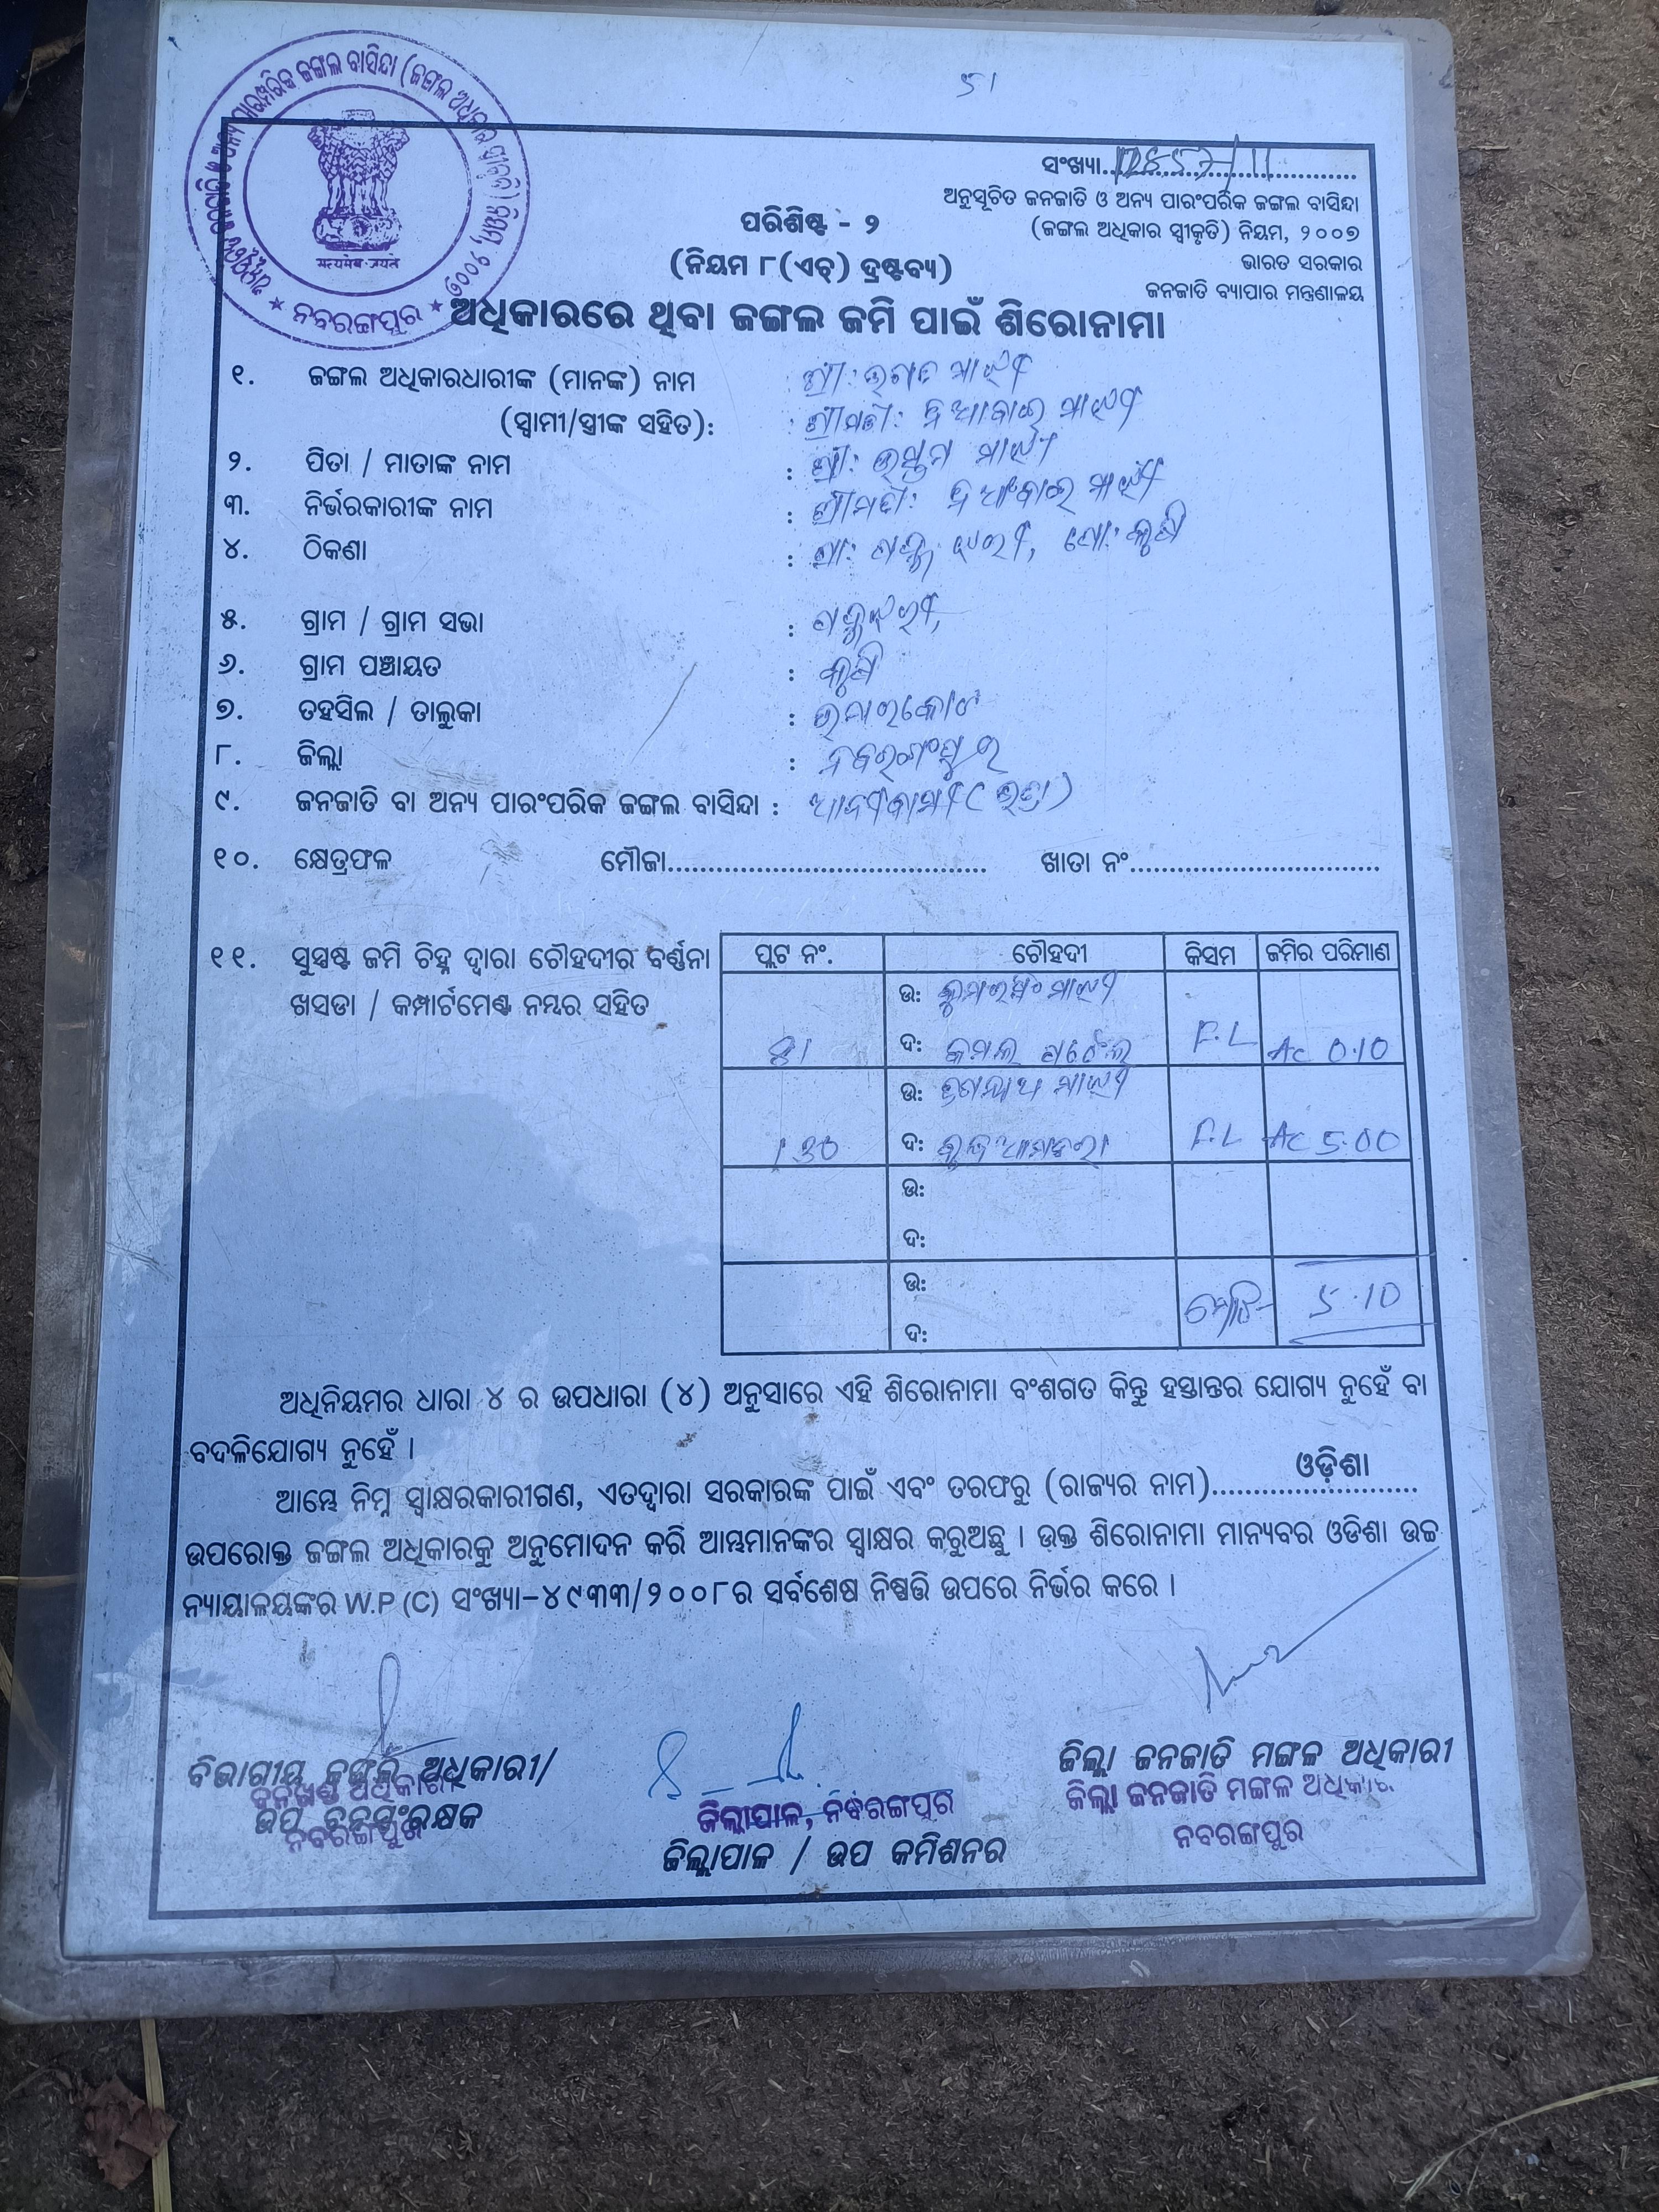 ୫।
ସଂଖ୍ୟା
ଅନୁସୂଚିତ ଜନଜାତି ଓ ଅନ୍ୟ ପାରଂପରିକ ଜଙ୍ଗଲ ବାସିନ୍ଦା
(ଜଙ୍ଗଲ ଅଧିକାର ସ୍ୱୀକୃତି) ନିୟମ, ୨୦୦୭
ଭାରତ ସରକାର
ଜନଜାତି ବ୍ୟାପାର ମନ୍ତ୍ରଣାଳୟ
सत्यमेव जयते
★ ନବରଙ୍ଗପୁର ★
ପରିଶିଷ୍ଟ - ୨
(ନିୟମ ୮(ଏଚ୍) ଦ୍ରଷ୍ଟବ୍ୟ)
ଅଧିକାରରେ ଥିବା ଜଙ୍ଗଲ ଜମି ପାଇଁ ଶିରୋନାମା
୧. ଜଙ୍ଗଲ ଅଧିକାରଧାରୀଙ୍କ (ମାନଙ୍କ) ନାମ ଶ୍ରୀ: ଭଗତ ମାଝୀ
(ସ୍ୱାମୀ/ସ୍ତ୍ରୀଙ୍କ ସହିତ): ଶ୍ରୀମତୀ: ମାଝୀ
୨. ପିତା / ମାତାଙ୍କ ନାମ : ଶ୍ରୀ: ମାଝୀ
୩. ନିର୍ଭରକାରୀଙ୍କ ନାମ : ଶ୍ରୀମତୀ: ମାଝୀ
୪. ଠିକଣା : ଗ୍ରା: ପୋ:
୫. ଗ୍ରାମ / ଗ୍ରାମ ସଭା :
୬. ଗ୍ରାମ ପଞ୍ଚାୟତ :
୭. ତହସିଲ / ତାଲୁକା : ଉମରକୋଟ
୮. ଜିଲ୍ଲା : ନବରଙ୍ଗପୁର
୯. ଜନଜାତି ବା ଅନ୍ୟ ପାରଂପରିକ ଜଙ୍ଗଲ ବାସିନ୍ଦା : ଆଦୀବାସୀ (ଭତ୍ରା)
୧୦. କ୍ଷେତ୍ରଫଳ ମୌଜା........................................ ଖାତା ନଂ................................
୧୧. ସୁସ୍ପଷ୍ଟ ଜମି ଚିହ୍ନ ଦ୍ୱାରା ଚୌହଦୀର ବର୍ଣ୍ଣନା
ଖସଡା / କମ୍ପାର୍ଟମେଣ୍ଟ ନମ୍ବର ସହିତ
ପ୍ଲଟ ନଂ. ଚୌହଦୀ କିସମ ଜମିର ପରିମାଣ
ଉ: ମାଝୀ
ଦ: କମଲ F.L Ac 0.10
ଉ: ମାଝୀ
ଦ: F.L Ac 5.00
ଉ:
ଦ:
ଉ: 5.10
ଦ:
ଅଧିନିୟମର ଧାରା ୪ ର ଉପଧାରା (୪) ଅନୁସାରେ ଏହି ଶିରୋନାମା ବଂଶଗତ କିନ୍ତୁ ହସ୍ତାନ୍ତର ଯୋଗ୍ୟ ନୁହେଁ ବା
ବଦଳିଯୋଗ୍ୟ ନୁହେଁ ।
ଆମ୍ଭେ ନିମ୍ନ ସ୍ୱାକ୍ଷରକାରୀଗଣ, ଏତଦ୍ୱାରା ସରକାରଙ୍କ ପାଇଁ ଏବଂ ତରଫରୁ (ରାଜ୍ୟର ନାମ) ଓଡ଼ିଶା
ଉପରୋକ୍ତ ଜଙ୍ଗଲ ଅଧିକାରକୁ ଅନୁମୋଦନ କରି ଆମ୍ଭମାନଙ୍କର ସ୍ୱାକ୍ଷର କରୁଅଛୁ । ଉକ୍ତ ଶିରୋନାମା ମାନ୍ୟବର ଓଡିଶା ଉଚ୍ଚ
ନ୍ୟାୟାଳୟଙ୍କର W.P (C) ସଂଖ୍ୟା-୪୯୩୩/୨୦୦୮ର ସର୍ବଶେଷ ନିଷ୍ପତ୍ତି ଉପରେ ନିର୍ଭର କରେ ।
ବିଭାଗୀୟ ଜଙ୍ଗଲ ଅଧିକାରୀ/
ବନଖଣ୍ଡ ଅଧିକାରୀ
ଉପ ବନସଂରକ୍ଷକ
ନବରଙ୍ଗପୁର
ଜିଲ୍ଲାପାଳ, ନବରଙ୍ଗପୁର
ଜିଲ୍ଲାପାଳ / ଉପ କମିଶନର
ଜିଲ୍ଲା ଜନଜାତି ମଙ୍ଗଳ ଅଧିକାରୀ
ଜିଲ୍ଲା ଜନଜାତି ମଙ୍ଗଳ ଅଧିକାରୀ
ନବରଙ୍ଗପୁର